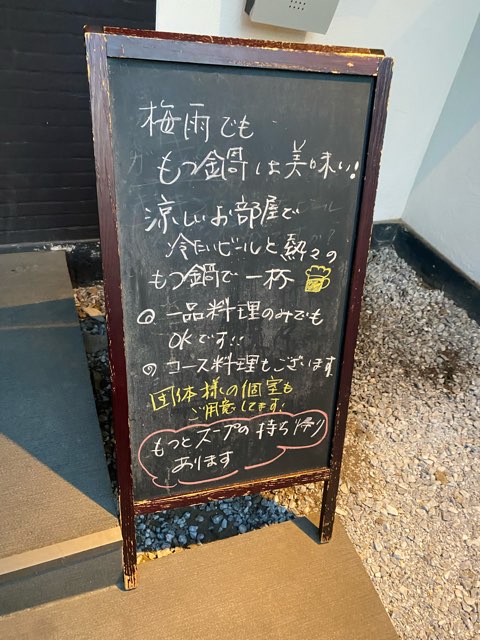 梅雨でも
もつ鍋は美味い!
涼しいお部屋で
冷たいビールと熱々の
もつ鍋で一杯
一品料理のみでも
OKです!!
コース料理もございます
団体様の個室も
ご用意してます!
もつとスープの持ち帰り
あります